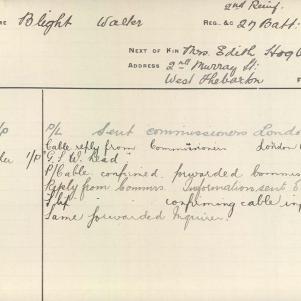 2nd Reinf.
Blight Walter REG. &C 27 Batt.
NEXT OF KIN Mrs. Edith
ADDRESS 2nd Murray St.
West Thebarton
P/L Sent commissioners London
Cable reply from Commissioners London
1/P "G.S.W. Head"
P/Cable confirmed forwarded
Reply from Commrs. Information sent
confirming cable
Same forwarded Inquirer.